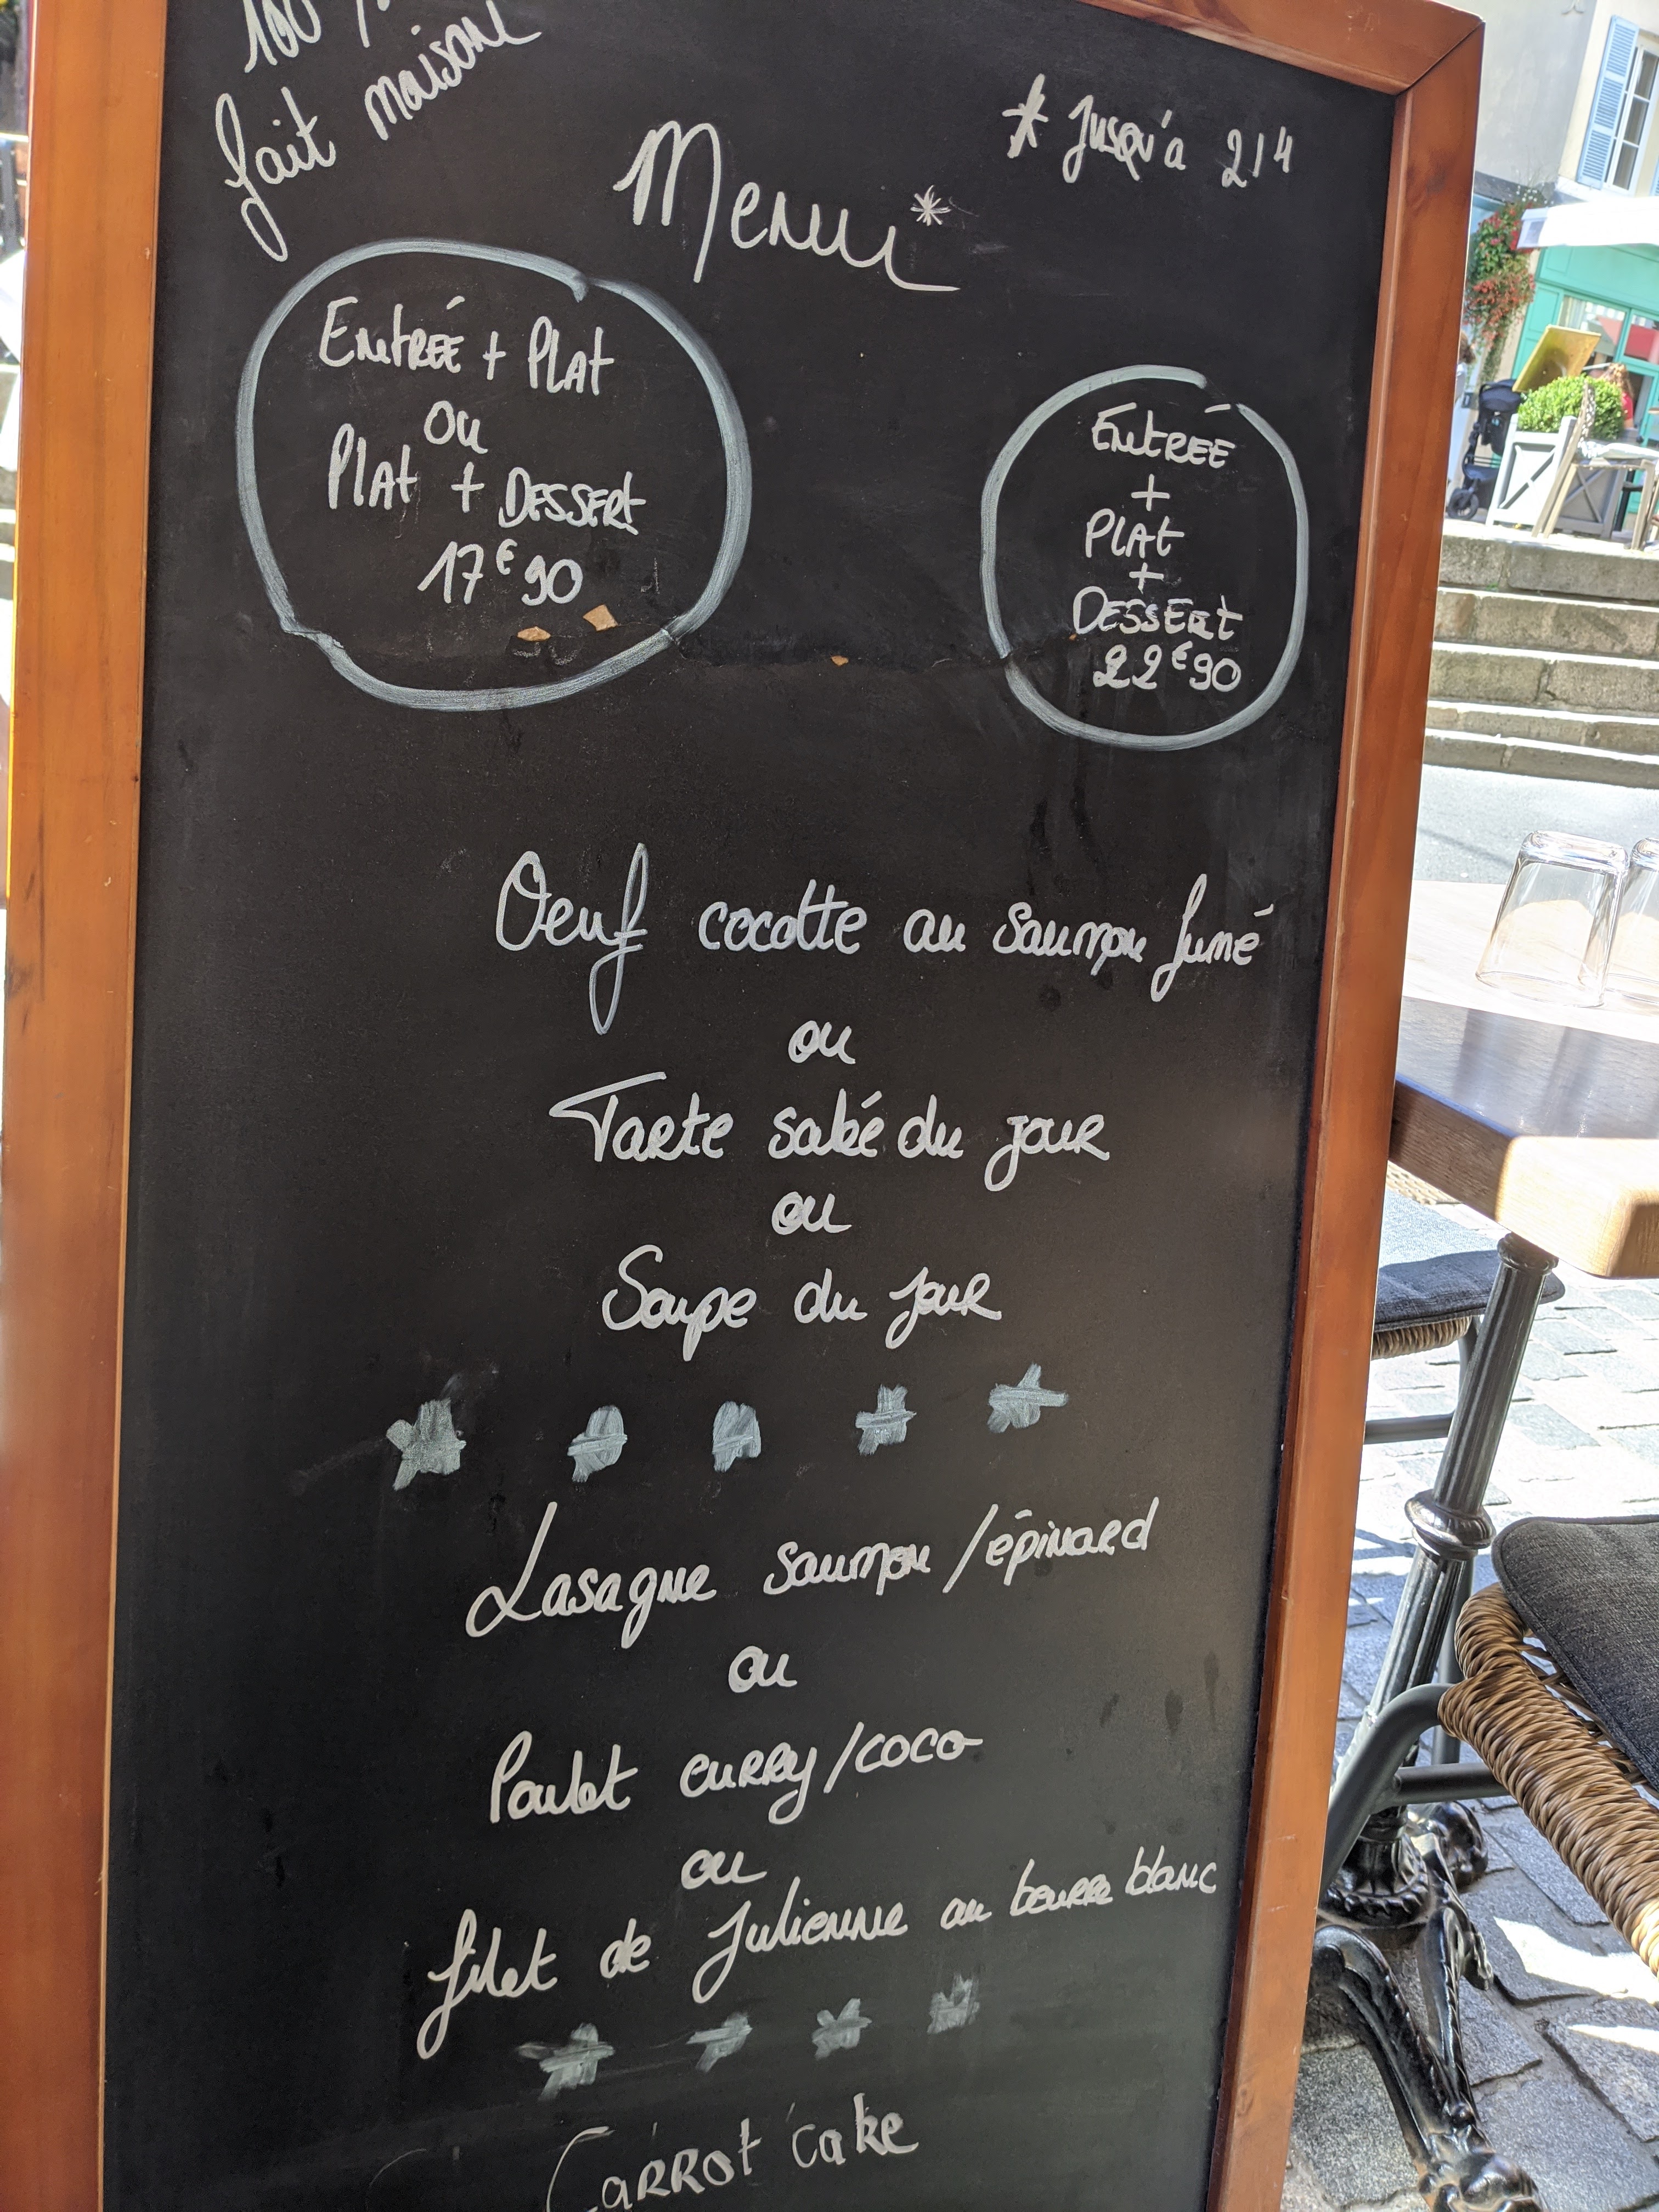 100 %
fait maison
* Jusqu'à 21h
Menu*
Entreé + Plat
ou
Plat + Dessert
17€90
Entreé
+
Plat
+
Dessert
22€90
Oeuf cocotte au saumon fumé
ou
Tarte salée du jour
ou
Soupe du jour
Lasagne saumon/épinard
ou
Poulet curry/coco
ou
filet de Julienne au beurre blanc
Carrot cake